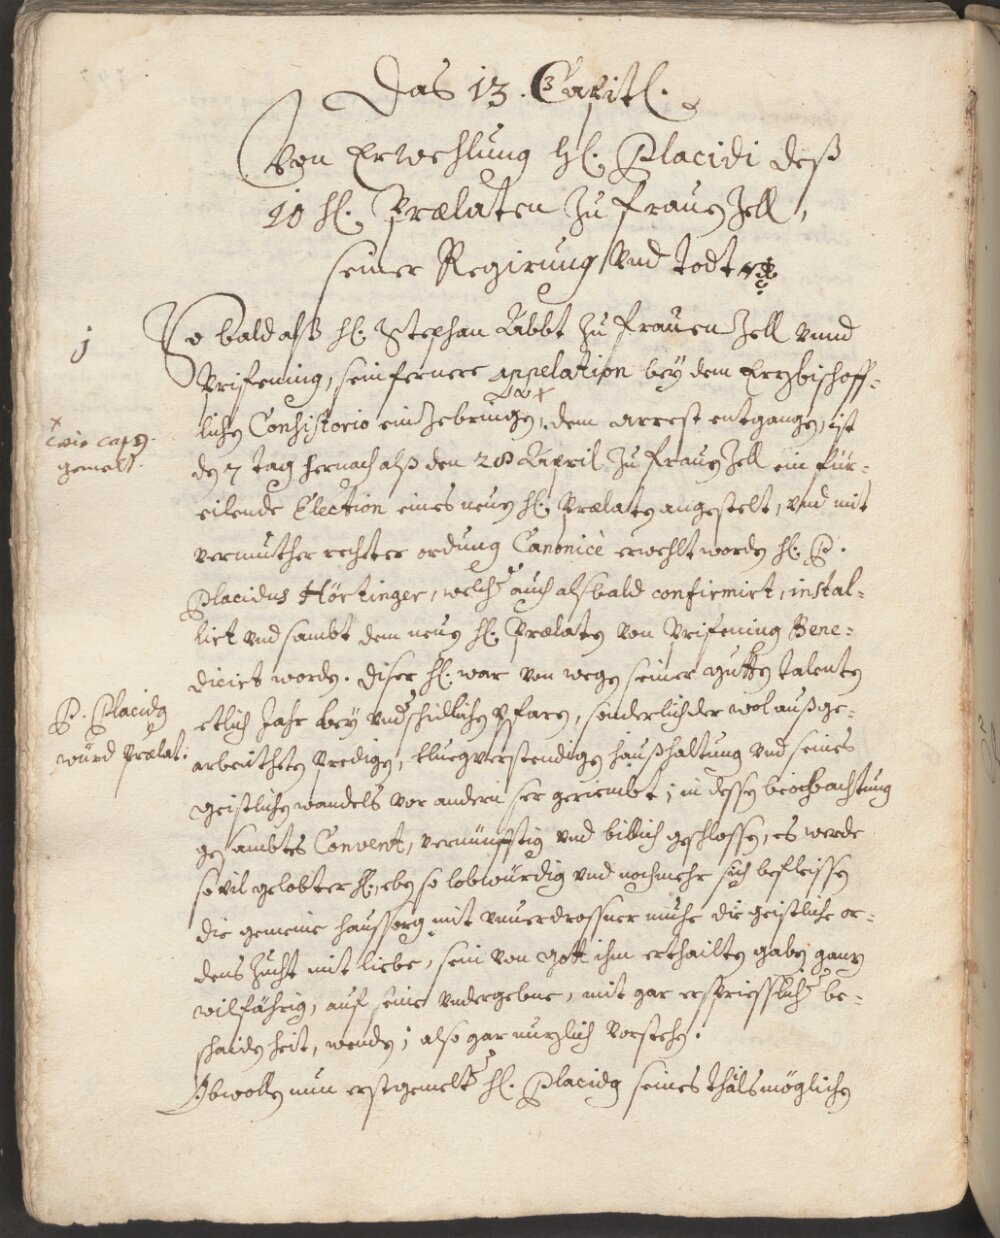 Das 13. Capitl.
Von Erwehlung H. Placidi deß
10 H. Prælaten zu Frauen Zell,
seiner Regirung vnd todt
1
So bald alß H. Stephan Abbt zu Frauen Zell vnnd
Prifening, sein fernere appelation bey dem Erzbischoff-
lichen Consistorio einzebringen, dem arrest entgangen, ist
x
wie cap 9.
gemelt.
den 7 tag hernach alß den 28 April zu Frauen Zell ein für-
eilende Election eines neuen H. Prælaten angestelt, vnd mit
vermuther rechter ordnung Canonicè erwehlt worden H. P.
Placidus Hörtinger, welcher auch alsbald confirmirt, instal-
lirt vnd sambt dem neuen H. Prælaten von Prifening Bene-
dicirt worden. Diser H. war von wegen seiner gutten talenten
P. Placidus
würd Prælat.
etlich Jahr bey vndschidlichen Pfaren, sonderlich der wol außge-
arbeitheten Predigen, kluegverstendigen haußhaltung vnd seines
geistlichen wandels vor andern ser geriembt; in dessen beobachtung
gesambtes Convent, vernünfftig vnd billich geschlossen, es werde
so vil gelobter H. eben so lobwürdig vnd noch mehr sich befleissen
die gemeine haussorg mit vnuerdrossner muhe die geistliche or-
dens zucht mit liebe, sein von Gott ihm erthailten gaben ganz
wilfährig, auf seine vndergebne, mit gar ersprießlicher be-
schaidenheit, wenden; also gar nuzlich vorstehen.
Obwollen nun erstgemelter H. Placidus seines thails möglichen